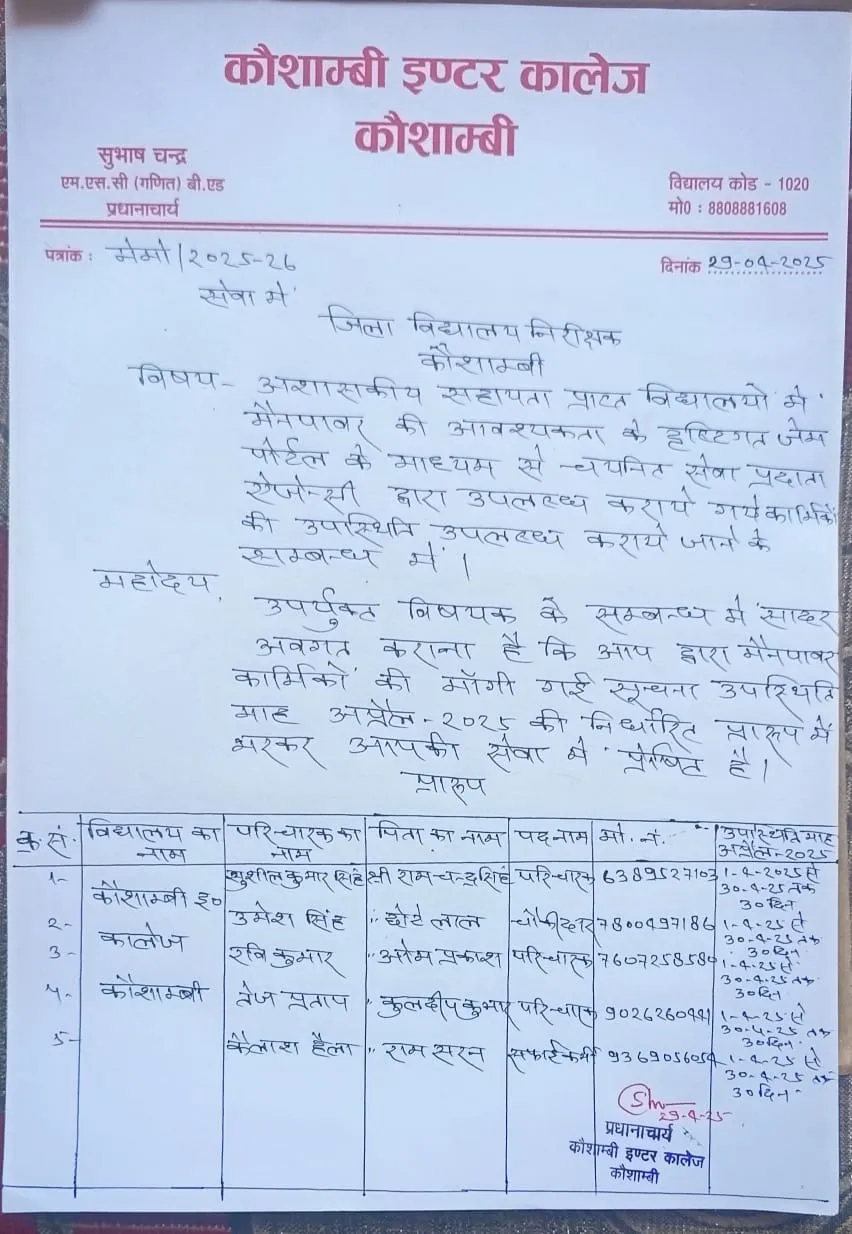 कौशाम्बी इण्टर कालेज
कौशाम्बी
सुभाष चन्द्र
एम.एस.सी (गणित) बी.एड
प्रधानाचार्य
विद्यालय कोड - 1020
मो0 : 8808881608
पत्रांक : मेमो/2025-26
दिनांक 29-04-2025
सेवा में
जिला विद्यालय निरीक्षक
कौशाम्बी
विषय - अशासकीय सहायता प्राप्त विद्यालयों में
मैनपावर की आवश्यकता के दृष्टिगत जेम
पोर्टल के माध्यम से चयनित सेवा प्रदाता
ऐजेन्सी द्वारा उपलब्ध कराये गये कार्मिकों
की उपस्थिति उपलब्ध कराये जाने के
सम्बन्ध में।
महोदय,
उपर्युक्त विषयक के सम्बन्ध में सादर
अवगत कराना है कि आप द्वारा मैनपावर
कार्मिकों की माँगी गई सूचना उपस्थिति
माह अप्रैल-2025 की निर्धारित प्रारूप में
भरकर आपकी सेवा में प्रेषित है।
प्रारूप
क्र.सं. विद्यालय का नाम परिचारक का नाम पिता का नाम पदनाम मो. नं. उपस्थिति माह अप्रैल-2025
1- कौशाम्बी इ० सुशील कुमार सिंह श्री रामचन्द्र सिंह परिचारक 6389527103 1-4-2025 से 30-4-25 तक 30 दिन
2- कालेज उमेश सिंह " छोटे लाल चौकीदार 7800497186 1-4-25 से 30-4-25 तक 30 दिन
3- रवि कुमार " ओम प्रकाश परिचारक 7607258580 1-4-25 से 30-4-25 तक 30 दिन
4- कौशाम्बी तेज प्रताप " कुलदीप कुमार परिचारक 9026260441 1-4-25 से 30-4-25 तक 30 दिन
5- कैलाश हैला " राम सरन सफाईकर्मी 9369056054 1-4-25 से 30-4-25 तक 30 दिन
29-4-25
प्रधानाचार्य
कौशाम्बी इण्टर कालेज
कौशाम्बी